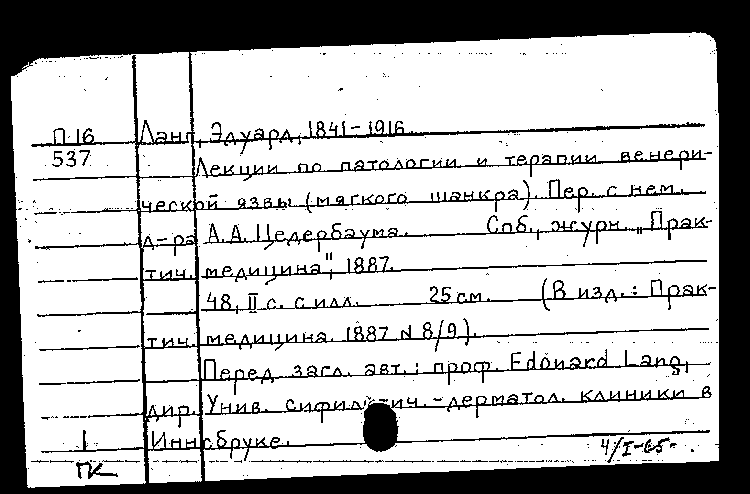 П-16 Ланг, Эдуард, 1841-1916.
537 Лекции по патологии и терапии венери-
ческой язвы (мягкого шанкра). Пер. с нем.
д-ра А.А. Цедербаума. Спб., журн. „Прак-
тич. медицина", 1887.
48, II с. с илл. 25 см. (В изд.: Прак-
тич. медицина. 1887 N 8/9).
Перед загл. авт.: проф. Edouard Lang,
дир. Унив. сифилитич.-дерматол. клиники в
1 Иннсбруке.
ПК 4/I-65-